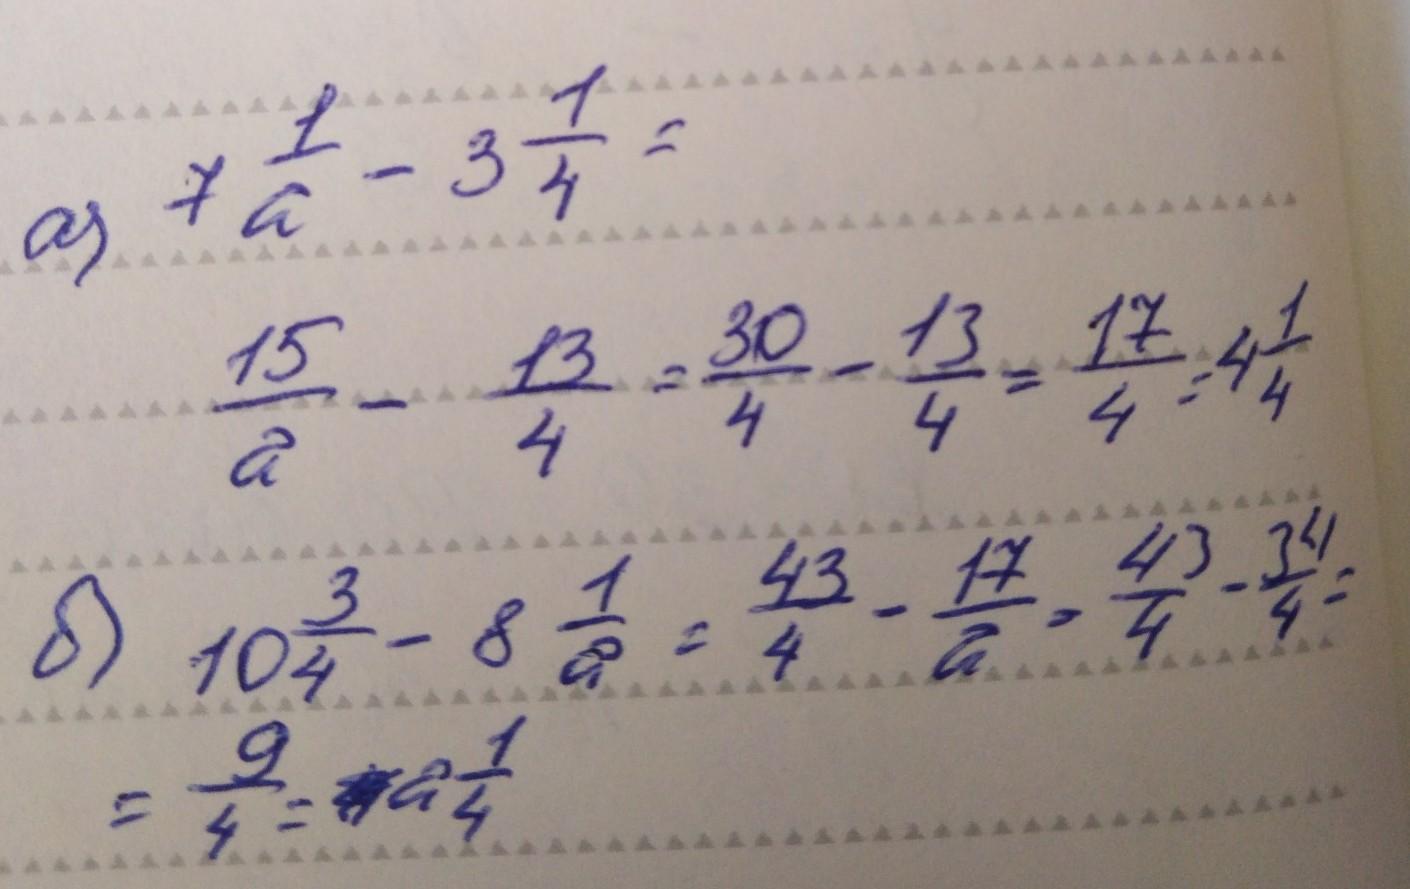 а) 7 1/2 - 3 1/4 =
15/2 - 13/4 = 30/4 - 13/4 = 17/4 = 4 1/4
б) 10 3/4 - 8 1/2 = 43/4 - 17/2 = 43/4 - 34/4 =
= 9/4 = 2 1/4